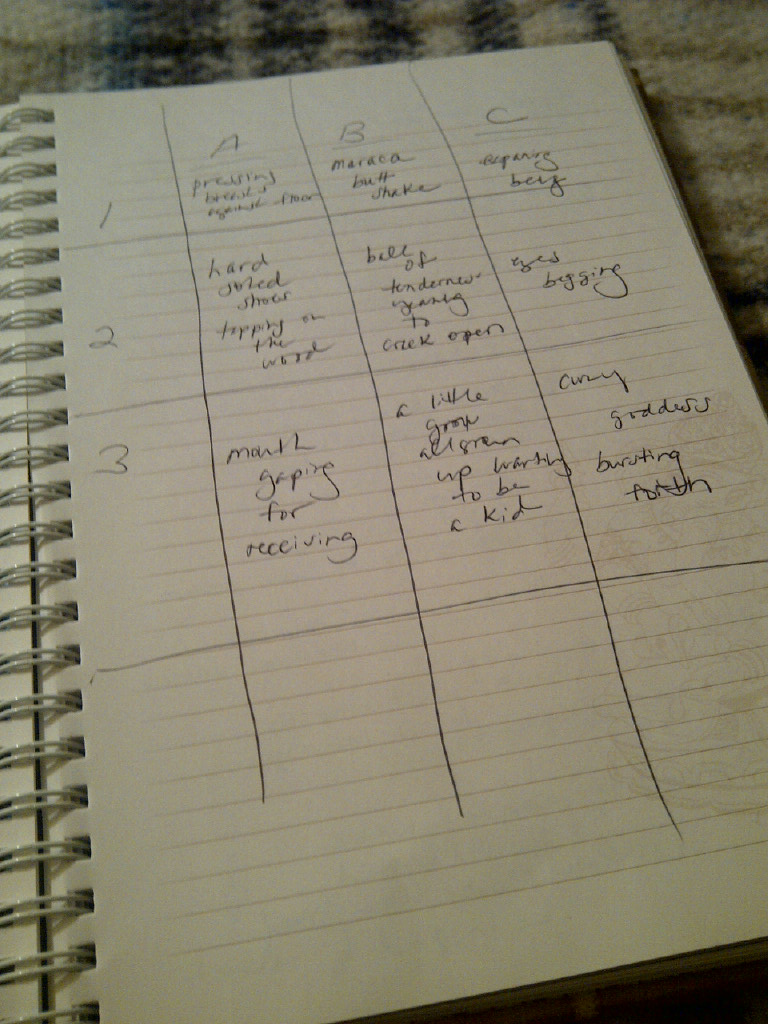 A
B
C
1
pressing
breasts
against floor
maraca
butt
shake
2
hard
soled
shoes
tapping on
the
wood
ball
of
tenderness
yearning
to
crack open
eyes
begging
3
mouth
gaping
for
receiving
a little
grown
all grown
up wanting
to be
a kid
curvy
goddess
bursting
forth